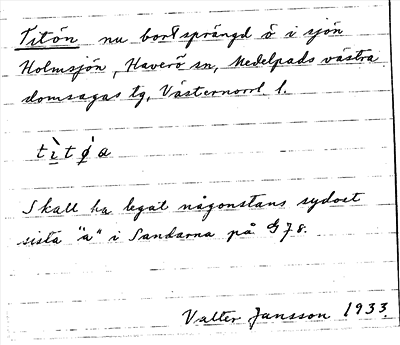 Titön nu bortsprängd ö i sjön
Holmsjön, Haverö sn, Medelpads västra
domsagas tg, Västernorrl l.
tìtø̀a
Skall ha legat någonstans sydost
sista "a" i Sandarna på G 78.
Valter Jansson 1933.